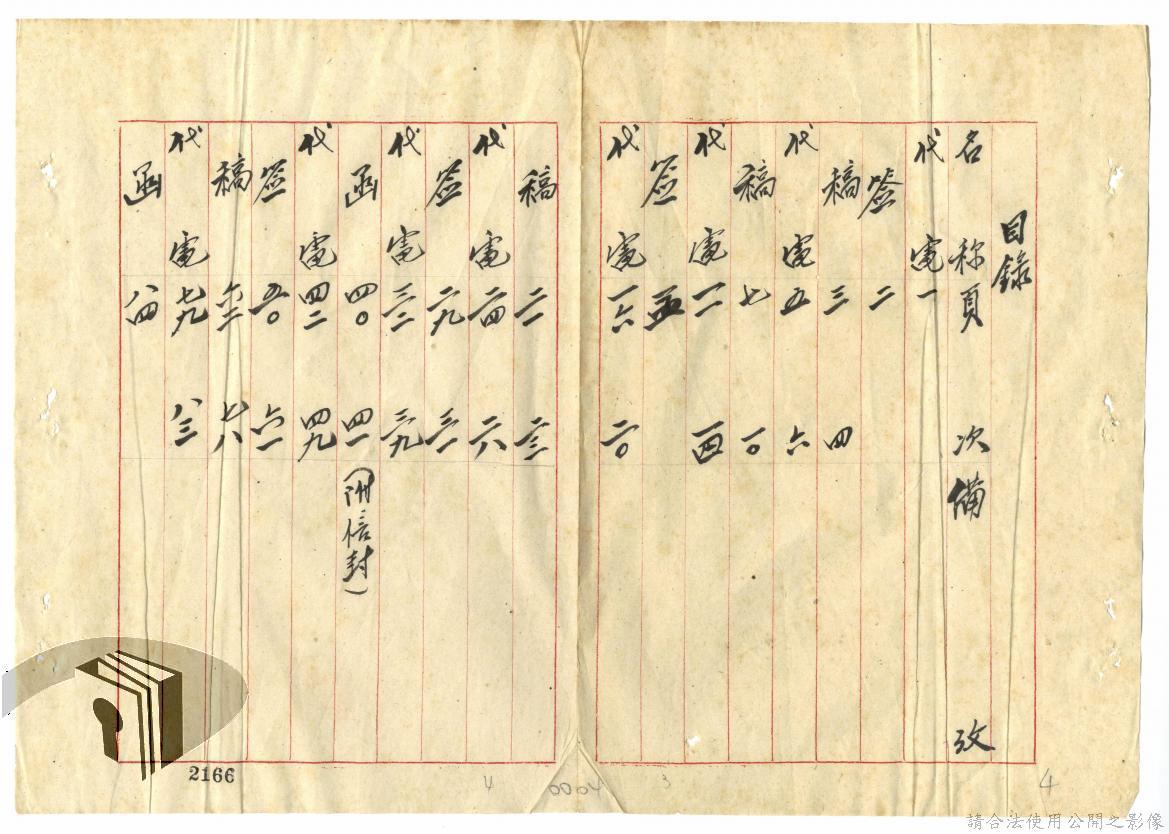 目錄
名称 頁次 備攷
代電 一
签 二
稿 三 四
代電 五 六
稿 七 一〇
代電 一一 一四
签 一五
代電 一六 二〇
稿 二一 二三
代電 二四 二八
签 二九 三一
代電 三二 三九
函 四〇 四一 (附信封)
代電 四二 四九
签 五〇 六一
稿 六二 七八
代電 七九 八三
函 八四
2166
4 0004 3 4
請合法使用公開之影像